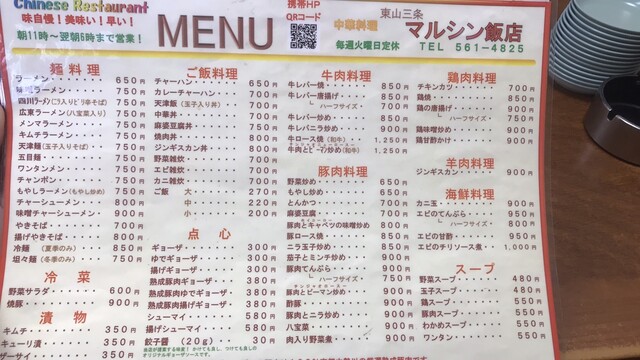 Chinese Restaurant
味自慢！美味い！早い！
朝11時〜翌朝6時まで営業！
MENU
携帯HP
QRコード
中華料理
毎週火曜日定休
東山三条
マルシン飯店
TEL 561-4825
麺料理
ラーメン・・・・・・ 650円
味噌ラーメン・・・・ 750円
四川ラーメン(ニラ入りピリ辛そば) 750円
広東ラーメン(八宝菜入り) 750円
メンマラーメン・・・ 750円
キムチラーメン・・・ 750円
天津麺(玉子入りそば) 750円
五目麺・・・・・・・ 750円
ワンタンメン・・・・ 750円
チャンポン・・・・・ 750円
もやしラーメン(もやし炒め) 750円
チャーシューメン・・ 900円
味噌チャーシューメン・ 900円
やきそば・・・・・・ 700円
揚げやきそば・・・・ 800円
冷麺 (夏季のみ)・・ 850円
坦々麺(冬季のみ)・・ 750円
冷菜
野菜サラダ・・・・ 600円
焼豚・・・・・・・ 900円
漬物
キムチ・・・・・・ 350円
キューリ漬・・・・ 350円
ザーサイ・・・・・ 350円
ご飯料理
チャーハン・・・・・ 650円
カレーチャーハン・・ 700円
天津飯(玉子入り丼)・・ 700円
中華丼・・・・・・・ 700円
麻婆豆腐丼・・・・・ 750円
焼肉丼・・・・・・・ 800円
ジンギスカン丼・・・ 800円
野菜雑炊・・・・・・ 700円
エビ雑炊・・・・・・ 700円
カニ雑炊・・・・・・ 700円
ご飯 大・・・・ 270円
中・・・・ 220円
小・・・・ 200円
点心
ギョーザ・・・・・・ 300円
ゆでギョーザ・・・・ 300円
揚げギョーザ・・・・ 300円
熟成豚肉ギョーザ・・ 380円
熟成豚肉ゆでギョーザ・ 380円
熟成豚肉揚げギョーザ・ 380円
シューマイ・・・・・ 580円
揚げシューマイ・・・ 580円
餃子醤(20g)・・・ 30円
オリジナルギョーザソースです。
牛肉料理
牛レバー焼・・・・・ 850円
牛レバーの唐揚げ・・ 850円
└ ハーフサイズ・・ 700円
牛レバー炒め・・・・ 850円
牛レバニラ炒め・・・ 900円
牛ロース焼(和牛)・・ 1,250円
牛肉とピーマン炒め(和牛) 1,250円
豚肉料理
野菜炒め・・・・・・ 650円
もやし炒め・・・・・ 650円
とんかつ・・・・・・ 700円
麻婆豆腐・・・・・・ 700円
豚肉とキャベツの味噌炒め 800円
豚ロース焼・・・・・ 850円
ニラ玉子炒め・・・・ 850円
茄子とミンチ炒め・・ 900円
豚肉てんぷら・・・・ 950円
└ ハーフサイズ・・ 750円
豚肉とピーマン炒め・ 900円
酢豚・・・・・・・・ 900円
豚肉とニラ炒め・・・ 900円
八宝菜・・・・・・・ 900円
肉入り野菜炒め・・・ 900円
鶏肉料理
チキンカツ・・・・・ 700円
鶏焼・・・・・・・・ 850円
鶏の唐揚げ・・・・・ 900円
└ ハーフサイズ・・ 750円
鶏味噌炒め・・・・・ 900円
鶏甘酢かけ・・・・・ 900円
羊肉料理
ジンギスカン・・・・ 900円
海鮮料理
カニ玉・・・・・・・ 900円
エビのてんぷら・・・ 950円
└ ハーフサイズ・・ 750円
エビの甘酢・・・・・ 950円
エビのチリソース煮・ 1,000円
スープ
野菜スープ・・・・・ 480円
玉子スープ・・・・・ 480円
鶏スープ・・・・・・ 550円
豚スープ・・・・・・ 550円
わかめスープ・・・・ 550円
ワンタン・・・・・・ 550円